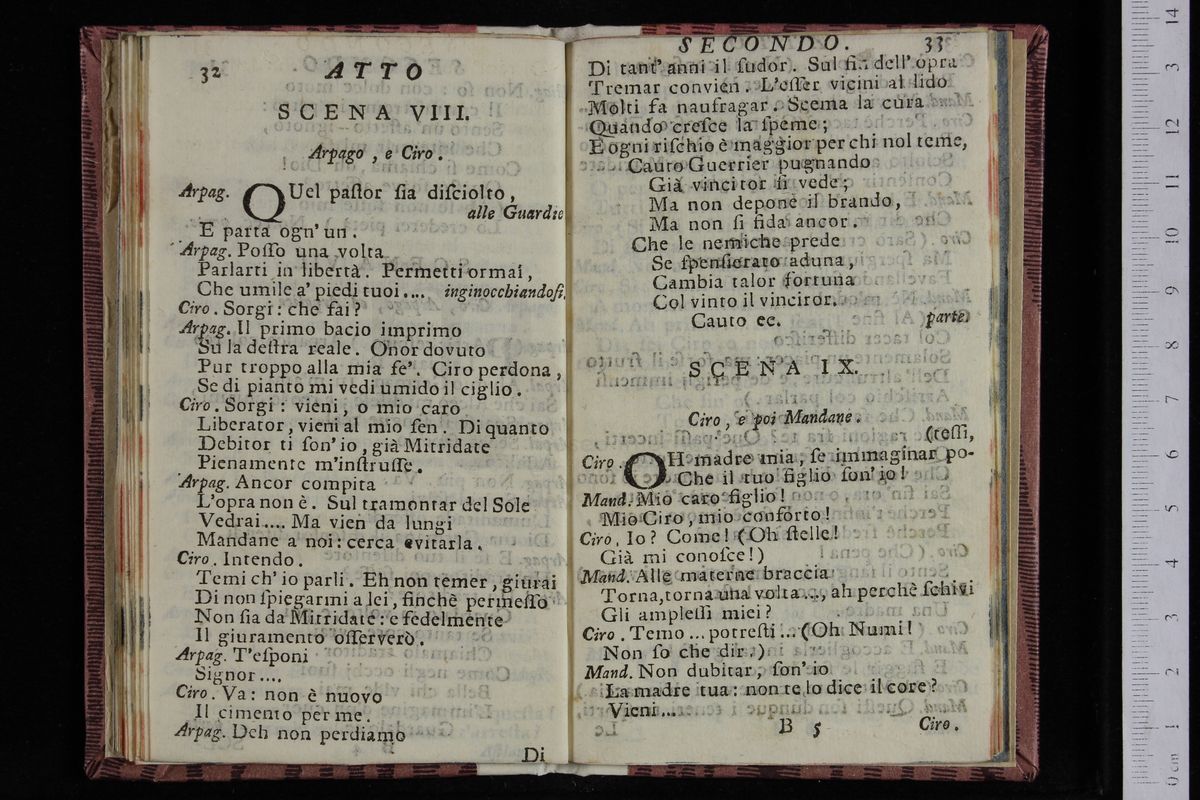 32 ATTO
SCENA VIII.
Arpago, e Ciro.
Arpag. QUel paſtor ſia diſciolto,
alle Guardie
E parta ogn' un.
Arpag. Poſſo una volta
Parlarti in libertà. Permetti ormai,
Che umile a' piedi tuoi.... inginocchiandoſi.
Ciro. Sorgi: che fai?
Arpag. Il primo bacio imprimo
Su la deſtra reale. Onor dovuto
Pur troppo alla mia fe'. Ciro perdona,
Se di pianto mi vedi umido il ciglio.
Ciro. Sorgi: vieni, o mio caro
Liberator, vieni al mio ſen. Di quanto
Debitor ti ſon' io, già Mitridate
Pienamente m'inſtruſſe.
Arpag. Ancor compita
L'opra non è. Sul tramontar del Sole
Vedrai.... Ma vien da lungi
Mandane a noi: cerca evitarla.
Ciro. Intendo.
Temi ch' io parli. Eh non temer, giurai
Di non ſpiegarmi a lei, finchè permeſſo
Non ſia da Mitridate: e fedelmente
Il giuramento oſſerverò.
Arpag. T'eſponi
Signor....
Ciro. Va: non è nuovo
Il cimento per me.
Arpag. Deh non perdiamo
Di
SECONDO. 33
Di tant' anni il ſudor. Sul fin dell' opra
Tremar convien. L'eſſer vicini al lido
Molti fa naufragar. Scema la cura
Quando creſce la ſpeme;
E ogni riſchio è maggior per chi nol teme,
Cauto Guerrier pugnando
Già vincitor ſi vede;
Ma non depone il brando,
Ma non ſi fida ancor.
Che le nemiche prede
Se ſpenſierato aduna,
Cambia talor fortuna
Col vinto il vincitor.
Cauto ec. parte.
SCENA IX.
Ciro, e poi Mandane.
(teſſi,
Ciro. OH madre mia, ſe immaginar po-
Che il tuo figlio ſon' io!
Mand. Mio caro figlio!
Mio Ciro, mio conforto!
Ciro. Io? Come! (Oh ſtelle!
Già mi conoſce!)
Mand. Alle materne braccia
Torna, torna una volta...., ah perchè ſchivi
Gli ampleſſi miei?
Ciro. Temo... potreſti... (Oh Numi!
Non ſo che dir.)
Mand. Non dubitar, ſon' io
La madre tua: non te lo dice il core?
Vieni...
B 5 Ciro.
0 cm 1 2 3 4 5 6 7 8 9 10 11 12 13 14